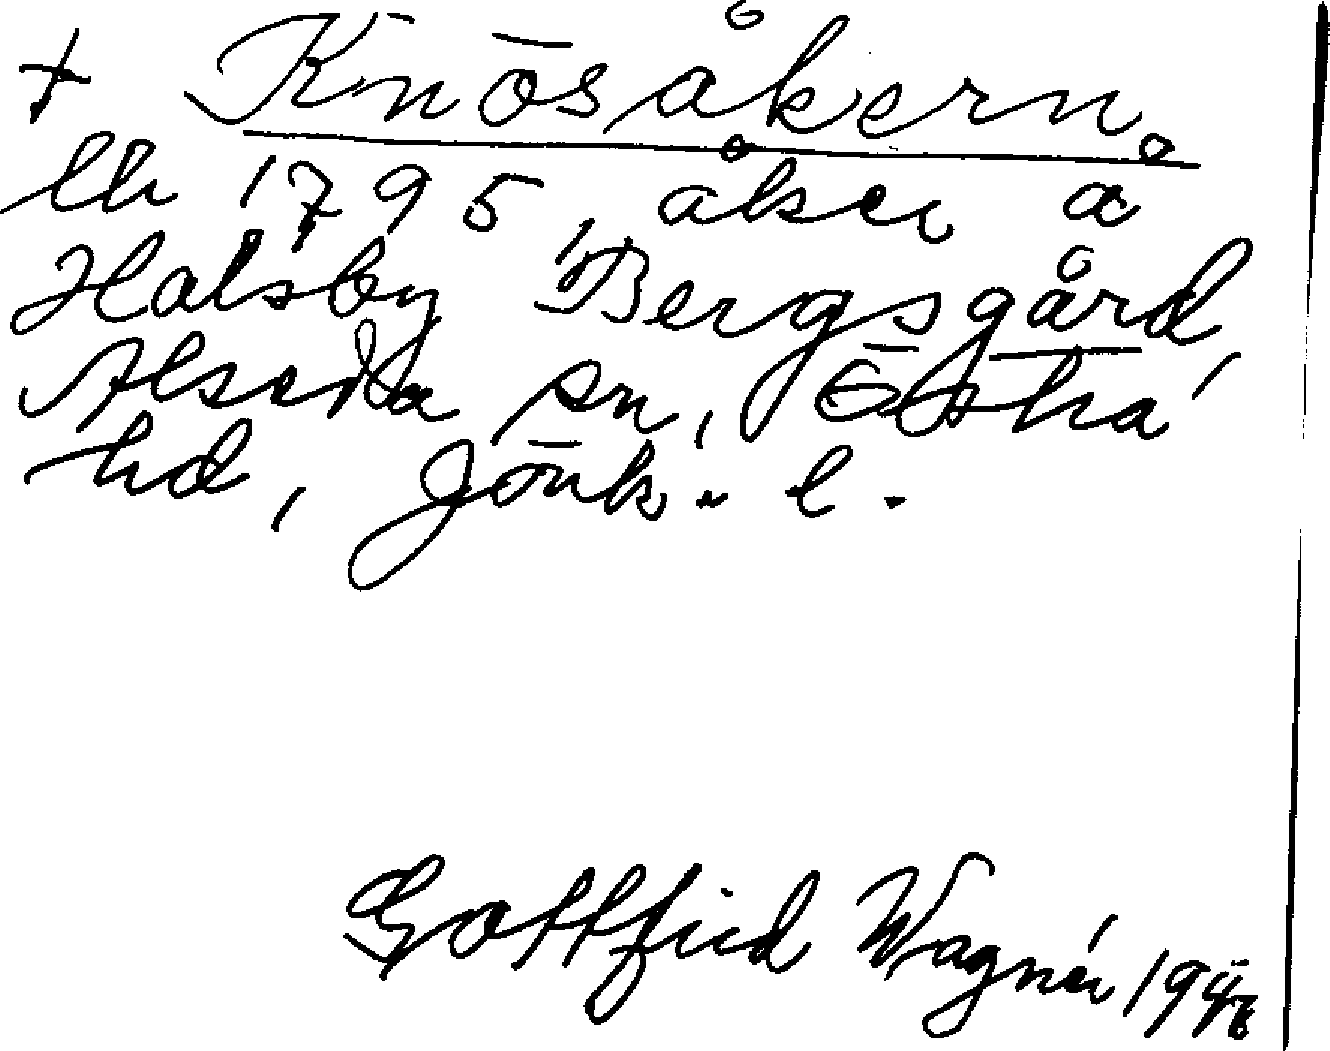 + Knösåkern
lh 1795, åker å
Halsby Bergsgård,
Alseda sn, Östra
hd, Jönk. l.
Gottfrid Wagnér